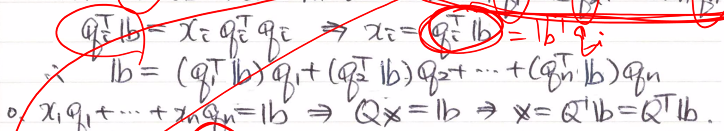 qᵢᵀ𝕓 = xᵢ qᵢᵀ qᵢ ⇒ xᵢ = qᵢᵀ𝕓 = 𝕓ᵀqᵢ
∴ 𝕓 = (q₁ᵀ𝕓) q₁ + (q₂ᵀ𝕓) q₂ + ⋯ + (qₙᵀ𝕓) qₙ
o. x₁q₁ + ⋯ + xₙqₙ = 𝕓 ⇒ Q𝕩 = 𝕓 ⇒ 𝕩 = Q⁻¹𝕓 = Qᵀ𝕓.